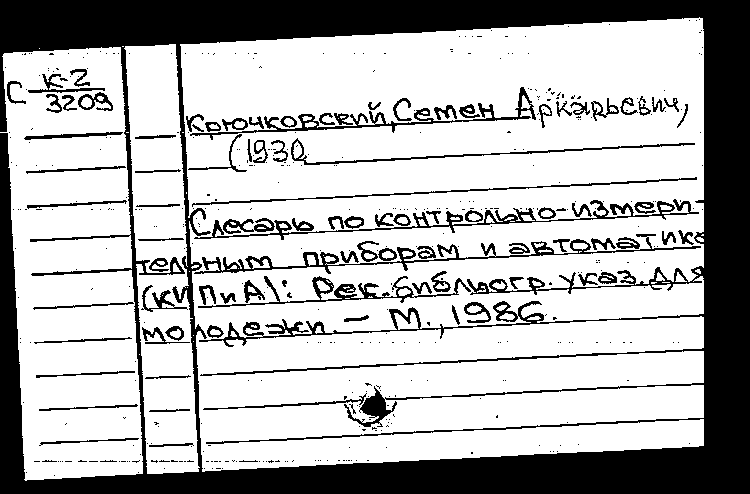 С К-2
3209
Крючковский, Семен Аркадьевич,
(1930
Слесарь по контрольно-измери-
тельным приборам и автоматике
(КИПиА): Рек. библиогр. указ. для
молодежи. – М., 1986.